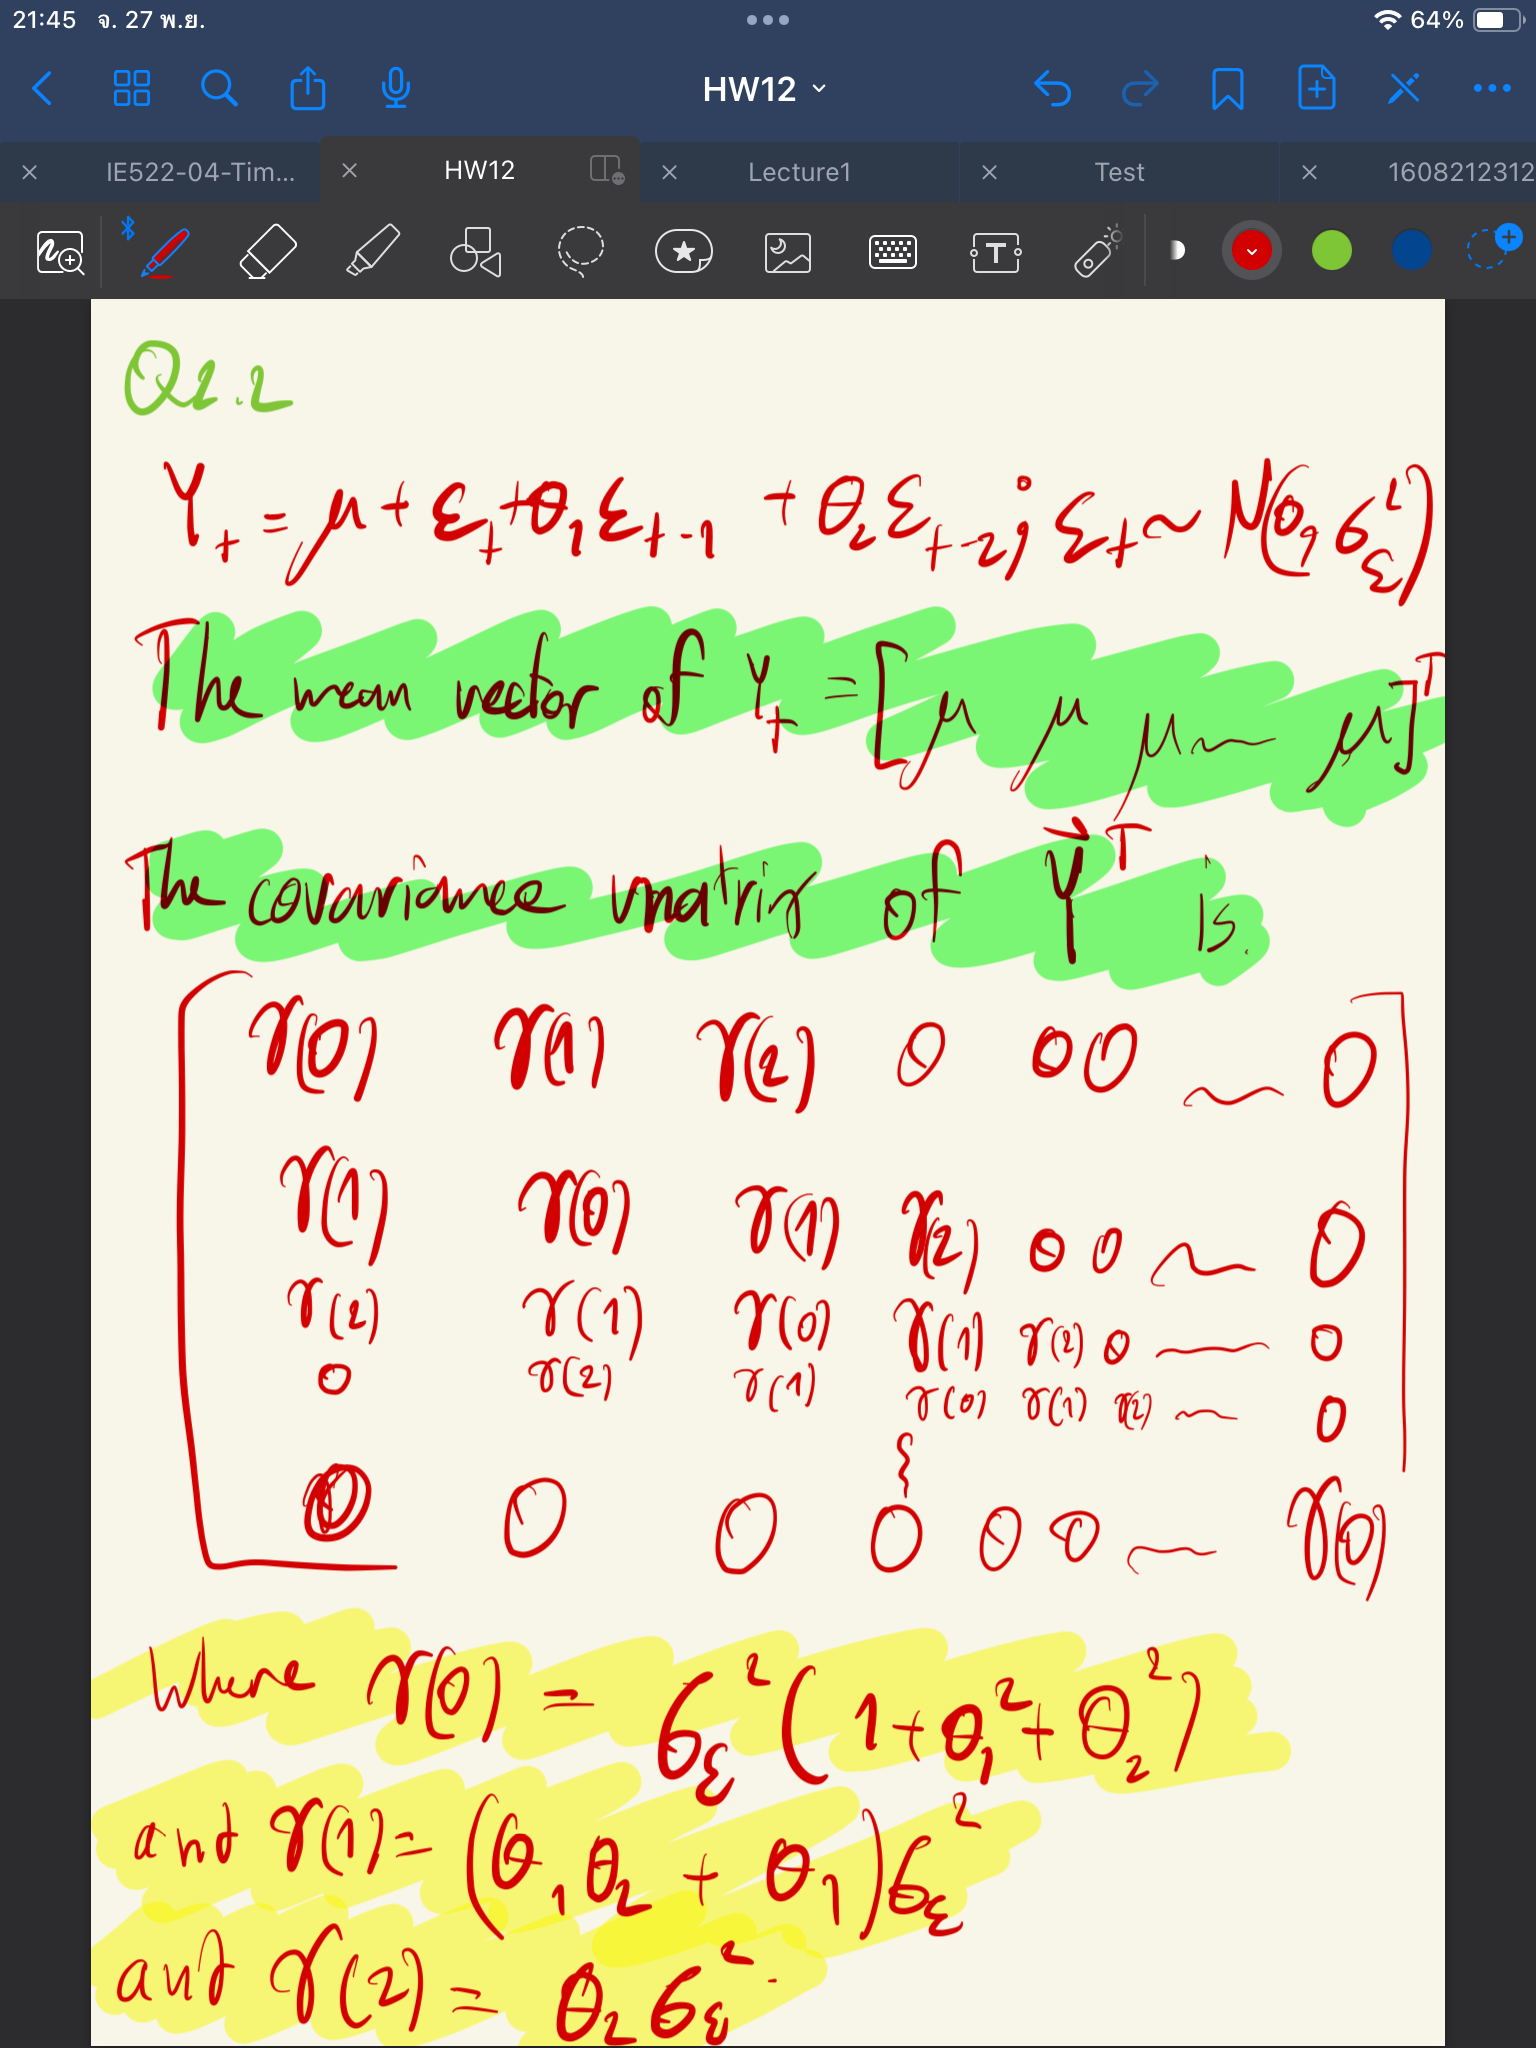 21:45 จ. 27 พ.ย. 64%
HW12
IE522-04-Tim... HW12 Lecture1 Test 1608212312
Q1.2
Y_t = μ + ε_t + θ_1 ε_{t-1} + θ_2 ε_{t-2} ; ε_t ~ N(0, σ_ε^2)
The mean vector of Y_t = [μ μ μ ~ μ]^T
The covariance matrix of Y^T is.
γ(0) γ(1) γ(2) 0 0 0 ~ 0
γ(1) γ(0) γ(1) γ(2) 0 0 ~ 0
γ(2) γ(1) γ(0) γ(1) γ(2) 0 ~ 0
0 γ(2) γ(1) γ(0) γ(1) γ(2) ~ 0
0 0 0 0 0 0 ~ γ(0)
Where γ(0) = σ_ε^2 (1 + θ_1^2 + θ_2^2)
and γ(1) = (θ_1 θ_2 + θ_1) σ_ε^2
and γ(2) = θ_2 σ_ε^2.